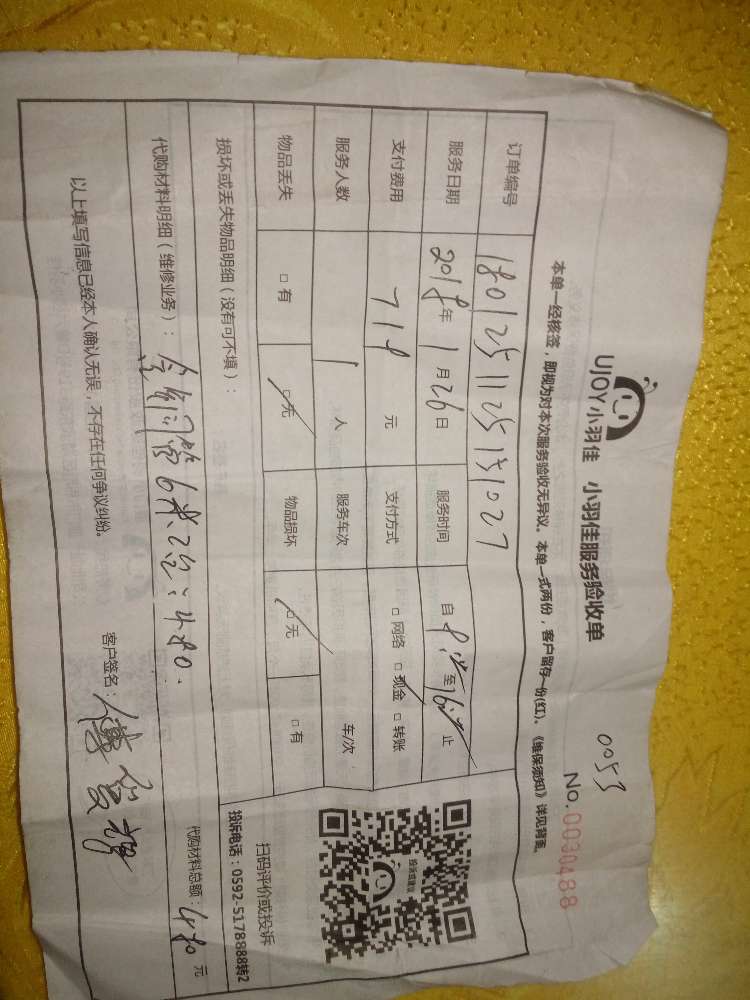 UJOY小羽佳 小羽佳服务验收单
0053
No.0030488
本单一经核签，即视为对本次服务验收无异议。本单一式两份，客户留存一份(红)。《维保须知》详见背面。
订单编号 1801251125151027
服务日期 2018年1月26日 服务时间 自 至 止
支付费用 718元 支付方式 □网络 □现金 □转账
服务人数 1人 服务车次 车/次
物品丢失 □有 □无 物品损坏 □无 □有
损坏或丢失物品明细（没有可不填）：
扫码评价或投诉
投诉电话：0592-5178888转2
投诉或建议
代购材料明细（维修业务）： 管6米 480. 代购材料总额：480元
以上填写信息已经本人确认无误，不存在任何争议纠纷。 客户签名：